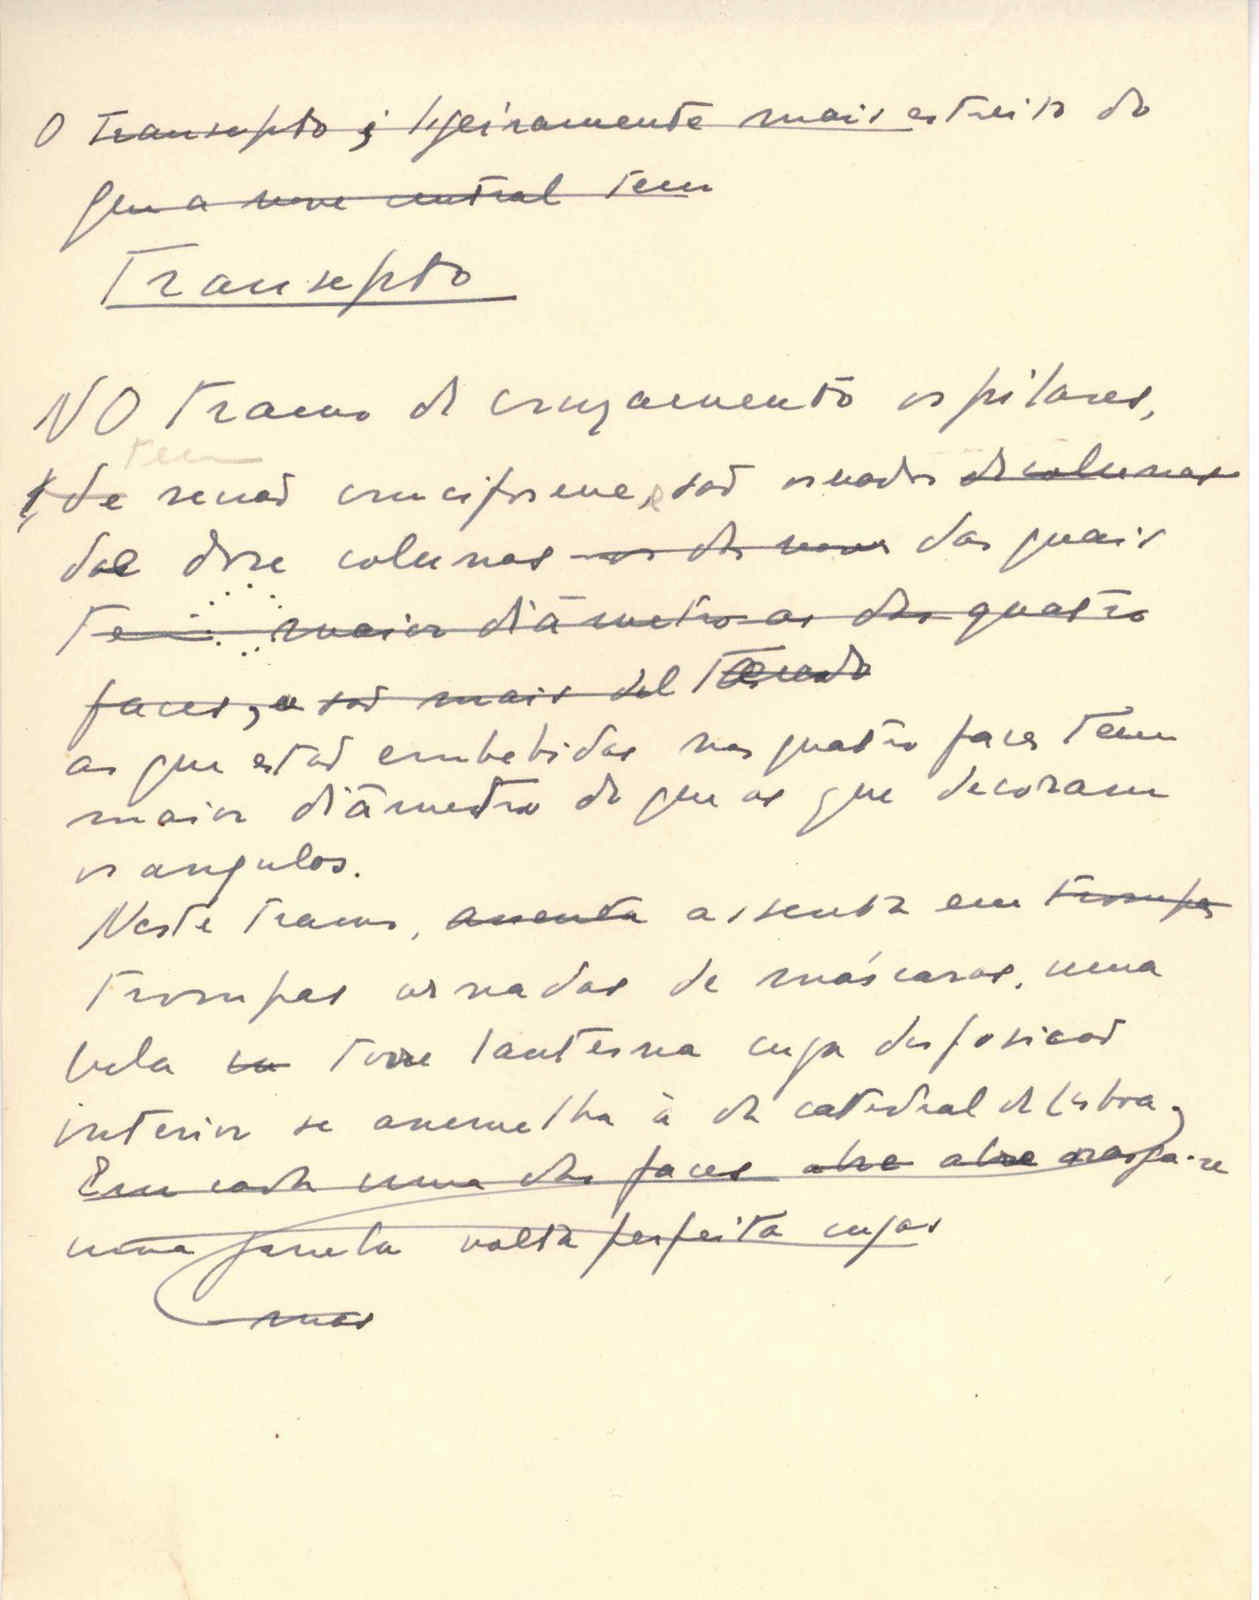 O transepto é ligeiramente mais estreito do
que a nave central tem
Transepto
NO tramo do cruzamento os pilares,
tem
de secção cruciforme, e são ornados de colunas
de doze colunas as da nave das quais
Tem maior diâmetro as das quatro
faces, e são mais del
as que estão embebidas nas quatro faces têm
maior diâmetro do que as que decoram
os angulos.
Neste tramo, assenta assenta em trompas
trompas ornadas de máscaras, uma
bela torre lanterna cuja disposição
interior se assemelha à da catedral de Lisboa,
Em cada uma das faces abre abre rasga-se
uma janela volta perfeita cujas
mas